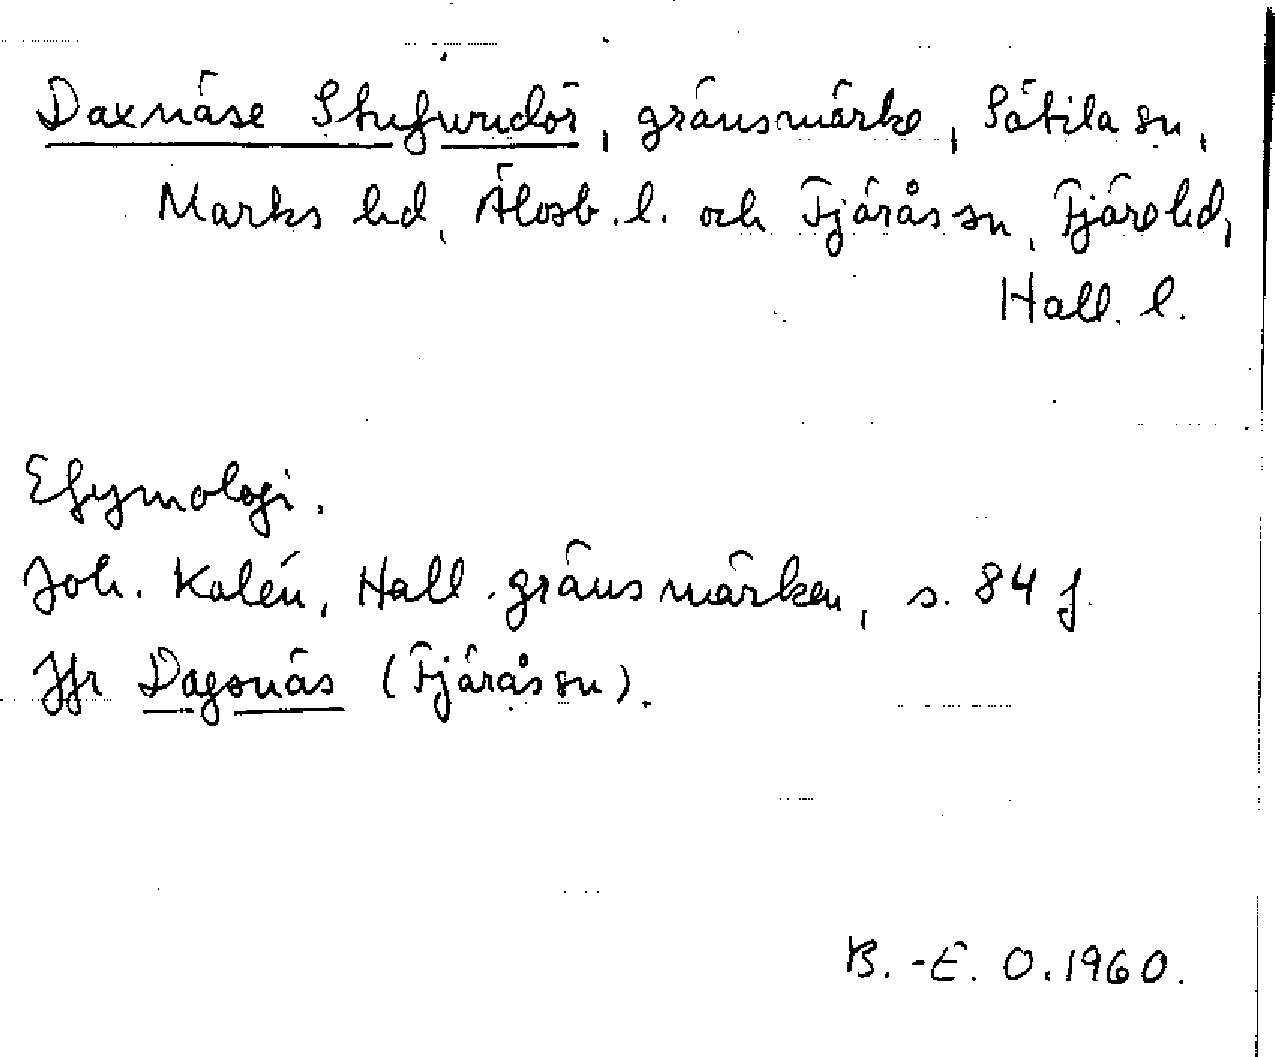 Daxnäse Stufwudör, gränsmärke, Sätila sn,
Marks hd, Älvsb. l. och Fjärås sn, Fjäre hd,
Hall. l.
Etymologi.
Joh. Kalén, Hall. gränsmärken, s. 84 f.
Jfr Dagsnäs (Fjärås sn).
B.-E. O. 1960.